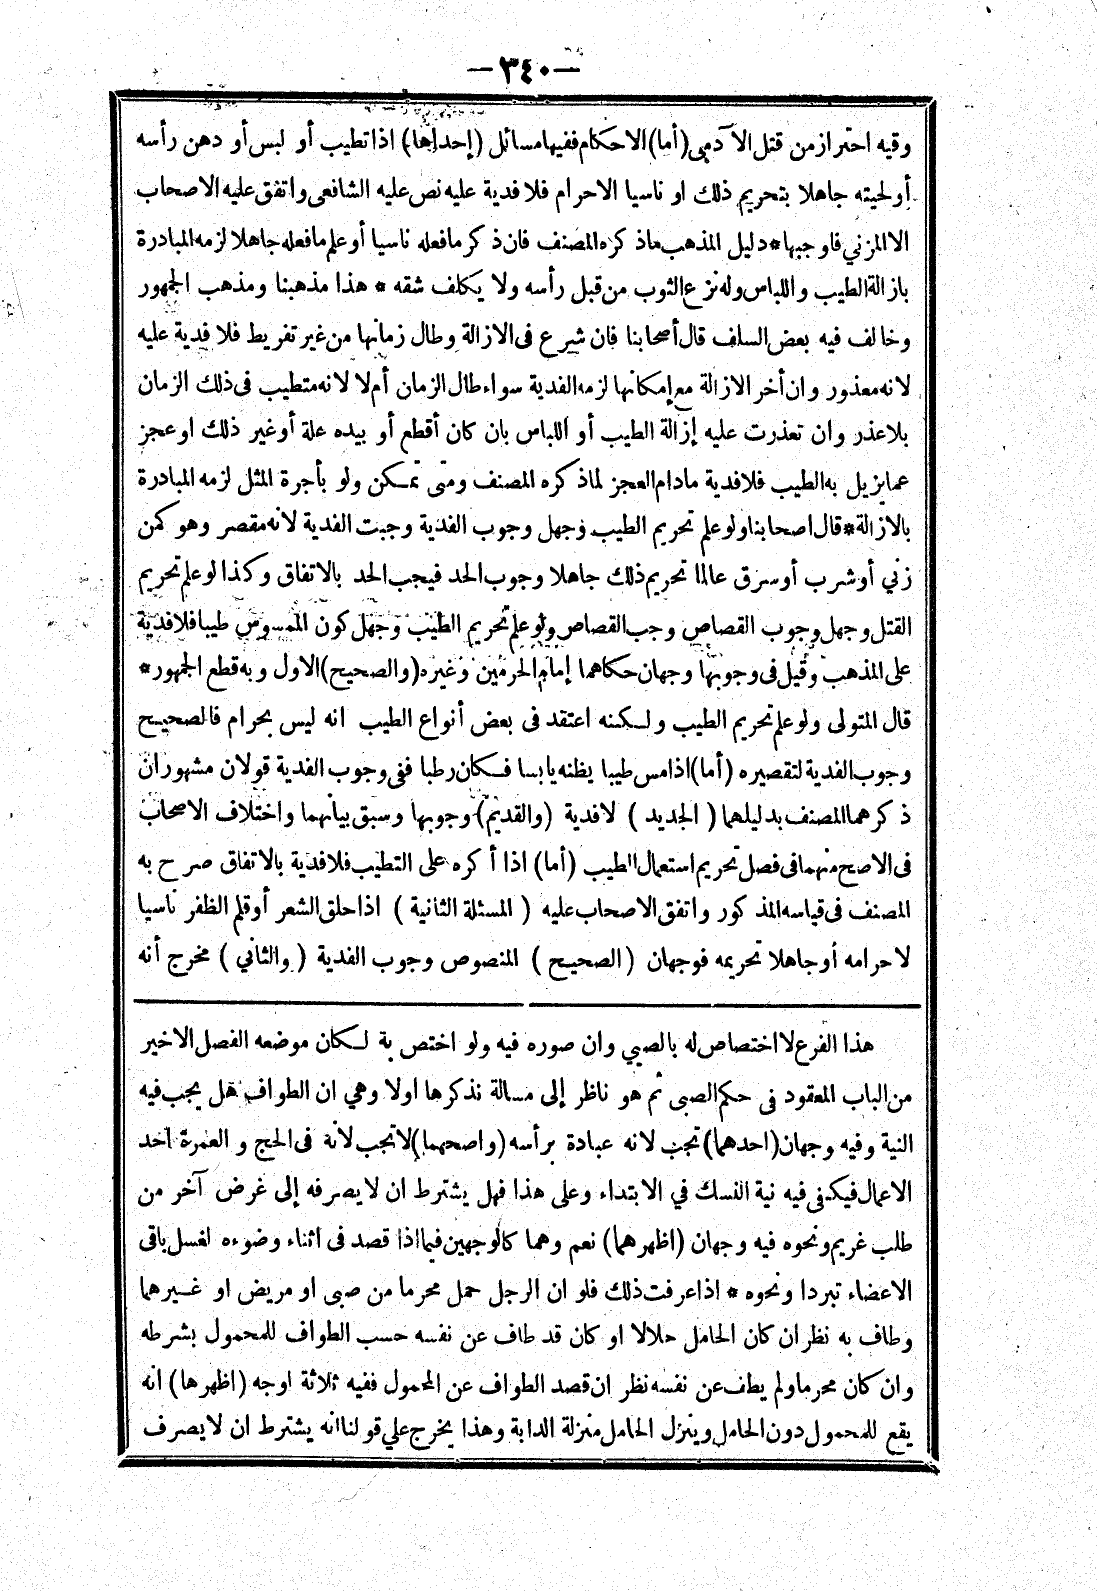 -٣٤٠-
وفيه احتراز من قتل الآدمى (أما) الاحكام ففيها مسائل (إحداها) اذا تطيب أو لبس أو دهن رأسه
أو لحيته جاهلا بتحريم ذلك او ناسيا الاحرام فلا فدية عليه نص عليه الشافعى واتفق عليه الاصحاب
الا المزني فاوجبها * دليل المذهب ماذكره المصنف فان ذكر ما فعله ناسيا أو علم ما فعله جاهلا لزمه المبادرة
بازالة الطيب واللباس وله نزع الثوب من قبل رأسه ولا يكلف شقه * هذا مذهبنا ومذهب الجمهور
وخالف فيه بعض السلف قال أصحابنا فان شرع فى الازالة وطال زمانها من غير تفريط فلا فدية عليه
لانه معذور وان أخر الازالة مع إمكانها لزمه الفدية سواء طال الزمان أم لا لانه متطيب فى ذلك الزمان
بلاعذر وان تعذرت عليه إزالة الطيب أو اللباس بان كان أقطع أو بيده علة أو غير ذلك او عجز
عما يزيل به الطيب فلا فدية مادام العجز لما ذكره المصنف ومتى تمكن ولو بأجرة المثل لزمه المبادرة
بالازالة * قال اصحابنا ولو علم تحريم الطيب وجهل وجوب الفدية وجبت الفدية لانه مقصر وهو كمن
زني أو شرب أو سرق عالما تحريم ذلك جاهلا وجوب الحد فيجب الحد بالاتفاق وكذا لو علم تحريم
القتل وجهل وجوب القصاص وجب القصاص ولو علم تحريم الطيب وجهل كون الممسوس طيبا فلا فدية
على المذهب وقيل فى وجوبها وجهان حكاهما إمام الحرمين وغيره (والصحيح) الاول وبه قطع الجمهور *
قال المتولى ولو علم تحريم الطيب ولكنه اعتقد فى بعض أنواع الطيب انه ليس بحرام فالصحيح
وجوب الفدية لتقصيره (أما) اذا مس طيبا يظنه يابسا فكان رطبا ففى وجوب الفدية قولان مشهوران
ذكرهما المصنف بدليلهما (الجديد) لا فدية (والقديم) وجوبها وسبق بيانهما واختلاف الاصحاب
فى الاصح منهما فى فصل تحريم استعمال الطيب (أما) اذا أكره على التطيب فلا فدية بالاتفاق صرح به
المصنف فى قياسه المذكور واتفق الاصحاب عليه (المسئلة الثانية) اذا حلق الشعر أو قلم الظفر ناسيا
لاحرامه أو جاهلا تحريمه فوجهان (الصحيح) المنصوص وجوب الفدية (والثاني) مخرج أنه
هذا الفرع لا اختصاص له بالصبي وان صوره فيه ولو اختص بة لكان موضعه الفصل الاخير
من الباب المعقود فى حكم الصبى ثم هو ناظر إلى مسالة نذكرها اولا وهي ان الطواف هل يجب فيه
النية وفيه وجهان (احدهما) تجب لانه عبادة برأسه (واصحهما) لا تجب لانه فى الحج والعمرة احد
الاعمال فيكفى فيه نية النسك في الابتداء وعلى هذا فهل يشترط ان لا يصرفه إلى غرض آخر من
طلب غريم ونحوه فيه وجهان (اظهرهما) نعم وهما كالوجهين فيما اذا قصد فى اثناء وضوءه لغسل باقى
الاعضاء تبردا ونحوه * اذا عرفت ذلك فلو ان الرجل حمل محرما من صبى او مريض او غيرهما
وطاف به نظر ان كان الحامل حلالا او كان قد طاف عن نفسه حسب الطواف للمحمول بشرطه
وان كان محرما ولم يطف عن نفسه نظر ان قصد الطواف عن المحمول ففيه ثلاثة اوجه (اظهرها) انه
يقع للمحمول دون الحامل وينزل الحامل منزلة الدابة وهذا يخرج علي قولنا انه يشترط ان لا يصرف